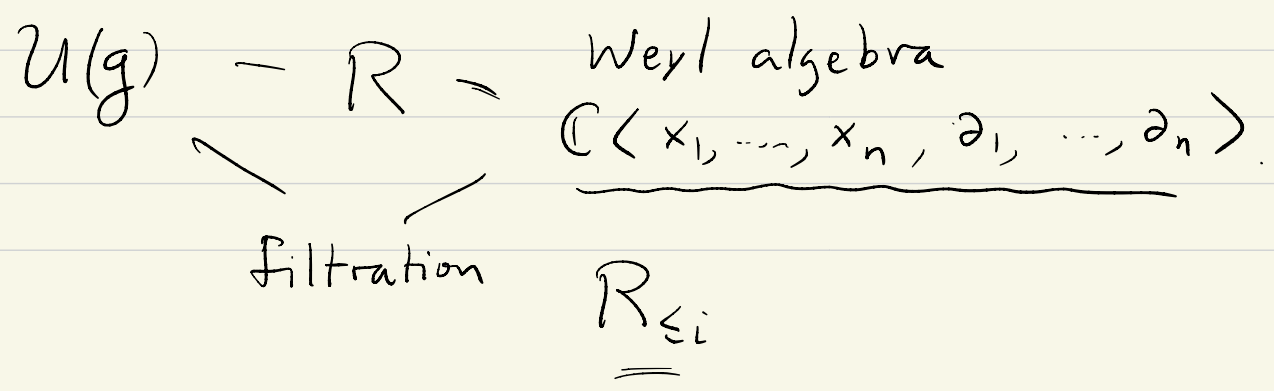 U(g) — R — Weyl algebra
ℂ< x₁, ..., xₙ, ∂₁, ..., ∂ₙ >.
filtration
R≤i